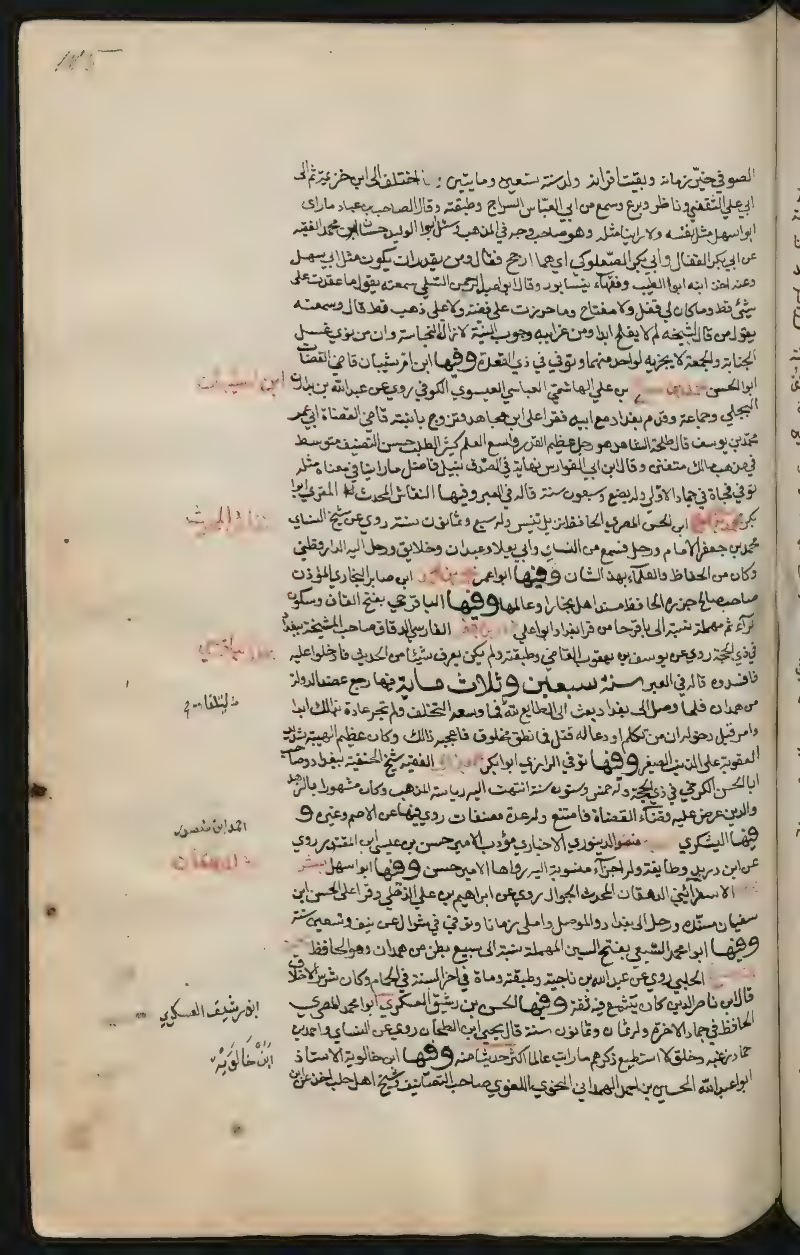 الصوفي حبر زمانه وبقية اقرانه ولد سنة تسعين ومايتين واختلف الى ابن خزيمة ثم الى
ابي علي الثقفي وناظر وبرع وسمع من ابي العباس السراج وطبقته وقال الصاحب بن عباد ما راى
ابو سهل مثل نفسه ولا راينا مثله وهو صاحب وجه في المذهب وسئل ابو الوليد حسان ابن محمد الفقيه
عن ابي بكر القفال وابي بكر الصعلوكي ايهما ارجح فقال ومن يقدر ان يكون مثل ابي سهل
وعنه اخذ ابنه ابو الطيب وفقهاء نيسابور وقال ابو عبد الرحمن السلمي سمعته يقول ما عقدت على
شئ قط وما كان لي قفل ولا مفتاح وما حرزت على فضة ولا على ذهب قط قال وسمعته
يقول من قال لشيخه لم لا يفلح ابدا ومن غرايبه وجوب النية لازالة النجاسة وان من نوى غسل
الجنابة والجمعة لا يجزيه لواحد منهما وتوفي في ذي القعدة وفيها ابن ام شيبان قاضي القضاة
ابو الحسن محمد بن صالح بن علي الهاشمي العباسي العيسوي الكوفي روى عن عبد الله بن بدران
ابن ام شيبان
البجلي وجماعة وقدم بغداد مع ابيه فقرا على ابن مجاهد وتزوج بابنة قاضي القضاة ابي عمر
محمد بن يوسف قال طلحة الشاهد هو رجل عظيم القدر واسع العلم كثير الطلب حسن التصنيف متوسط
في مذهب مالك متفنن وقال ابن ابي الفوارس نهاية في الصدق نبيل فاضل ما راينا في معناه مثله
توفي فجاة في جماد الاولى وله بضع وسبعون سنة قاله في العبر وفيها النقاش المحدث المقري ابو
بكر محمد بن علي ابن الحسن المصري الحافظ نزيل تنيس وله سبع وثمانون سنة روى عن شيخ النساي
محمد بن جعفر الامام ورحل فسمع من النساي وابي يعلا وعبدان وخلايق ورحل اليه الدارقطني
وكان من الحفاظ والعلماء بهذا الشان وفيها ابو عمرو محمد بن محمد ابن صابر البخاري المؤذن
صاحب صالح جزرة الحافظ مسند اهل بخارا وعالمها وفيها الباقرحي بفتح القاف وسكون
الراء ثم مهملة نسبة الى باقرحا من قرا بغداد ابو علي الفارسي الدقاق صاحب المشيخة ببغداد
في ذي الحجة روى عن يوسف بن يعقوب القاضي وطبقته ولم يكن يعرف شيئا من الحديث فادخلوا عليه
فافسدوه قاله في العبر سنة سبعين وثلاث ماية فيها رجع عضد الدولة
من همدان فلما وصل الى بغداد بعث الى الطايع لله فما وسعه التخلف ولم تجر عادة بذلك ابدا
وامر قبل دخوله ان من تكلم او دعا له قتل فما نطق مخلوق فاعجبه ذلك وكان عظيم الهيبة شديد
العقوبة على الذنب الصغير وفيها توفي الرازي ابو بكر الفقيه شيخ الحنفية ببغداد وصاحب
ابا الحسن الكرخي في ذي الحجة وله خمس وستون سنة انتهت اليه رياسة المذهب وكان مشهورا بالزهد
والدين عرض عليه قضاء القضاة فامتنع وله عدة مصنفات روى فيها عن الاصم وغيره و
فيها اليشكري منصور الدينوري الاخباري مؤدب الامير حسن بن عيسى ابن المقتدر روى
احمد ابن منصور
عن ابن دريد وطايفة وله اجزاء منسوبة اليه رواها الامير حسن وفيها ابو سهل بشر
الدهقان
الاسفرائيني الدهقان المحدث الجوال روى عن ابراهيم بن علي الذهلي وقرا على الحسن ابن
سفيان مسنده ورحل الى بغداد والموصل واملى زمانا وتوفي في شوال عن نيف وتسعين سنة
وفيها ابو محمد السبيعي بفتح السين المهملة نسبة الى سبيع بطن من همدان وهو الحافظ
الحلبي روى عن عبد الله بن ناجية وطبقته ومات في اخر السنة في الحمام وكان شرس الاخلاق
قال ابن ناصر الدين كان يتشيع فيه ثقة وفيها الحسن بن رشيق العسكري ابو محمد المصري
ابن رشيق العسكري
الحافظ في جماد الاخرة وله ثمان وثمانون سنة قال يحيى ابن الطحان روى عن النساي واحمد بن
حماد زغبه وخلق لا استطيع ذكرهم ما رايت عالما اكثر حديثا منه وفيها ابن خالوية الاستاذ
ابْنُ خَالَوَيْهِ
ابو عبد الله الحسين بن احمد الهمداني النحوي اللغوي صاحب التصانيف وشيخ اهل حلب اخذ عن ابن